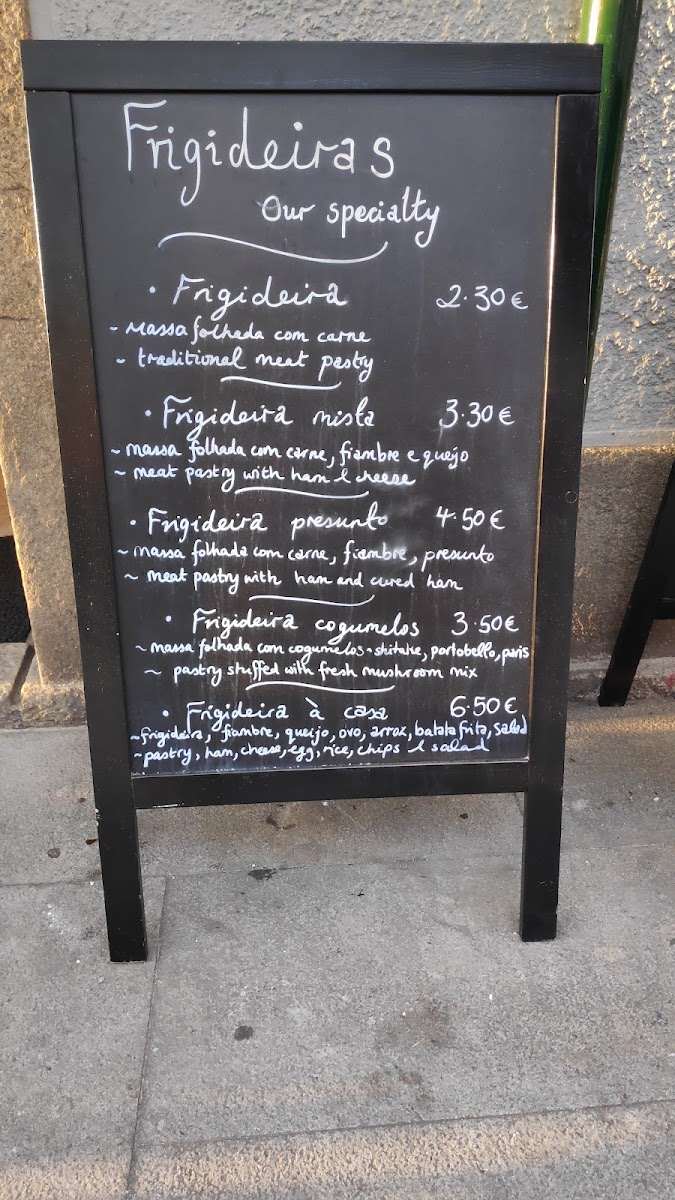 Frigideiras
Our specialty
• Frigideira 2.30€
- Massa folhada com carne
- traditional meat pastry
• Frigideira mista 3.30€
~ massa folhada com carne, fiambre e queijo
~ meat pastry with ham & cheese
• Frigideira presunto 4.50€
~ massa folhada com carne, fiambre, presunto
~ meat pastry with ham and cured ham
• Frigideira cogumelos 3.50€
~ massa folhada com cogumelos - shitake, portobello, paris
~ pastry stuffed with fresh mushroom mix
• Frigideira à casa 6.50€
~ frigideira, fiambre, queijo, ovo, arroz, batata frita, salad
~ pastry, ham, cheese, egg, rice, chips & salad